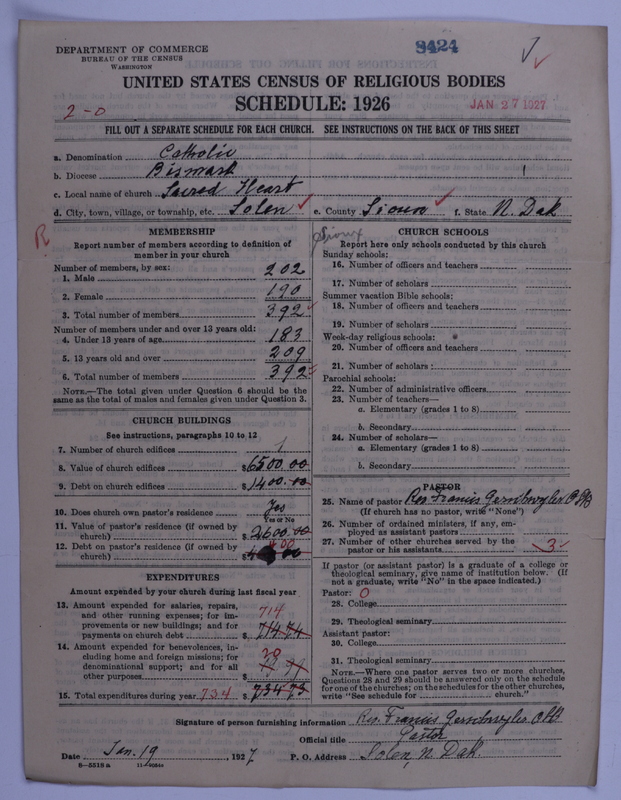 DEPARTMENT OF COMMERCE
BUREAU OF THE CENSUS
WASHINGTON
8424
UNITED STATES CENSUS OF RELIGIOUS BODIES
SCHEDULE: 1926
2-0
JAN 27 1927
FILL OUT A SEPARATE SCHEDULE FOR EACH CHURCH. SEE INSTRUCTIONS ON THE BACK OF THIS SHEET
a. Denomination Catholic
b. Diocese Bismark
c. Local name of church Sacred Heart
d. City, town, village, or township, etc. Solen e. County Sioux f. State N. Dak
R
Sioux
MEMBERSHIP
Report number of members according to definition of
member in your church
Number of members, by sex:
1. Male 202
2. Female 190
3. Total number of members 392
Number of members under and over 13 years old:
4. Under 13 years of age 183
5. 13 years old and over 209
6. Total number of members 392
NOTE.—The total given under Question 6 should be
same as the total of males and females given under Question 3.
CHURCH BUILDINGS
See instructions, paragraphs 10 to 12
7. Number of church edifices 1
8. Value of church edifices $6500.00
9. Debt on church edifices $1400.00
10. Does church own pastor's residence Yes
Yes or No
11. Value of pastor's residence (if owned by
church) $2600.00
12. Debt on pastor's residence (if owned by
church) $ 00
EXPENDITURES
Amount expended by your church during last fiscal year
13. Amount expended for salaries, repairs,
and other running expenses; for im-
provements or new buildings; and for
payments on church debt $ 714 714.74
14. Amount expended for benevolences, in-
cluding home and foreign missions; for
denominational support; and for all
other purposes $ 20
15. Total expenditures during year 734 $734.73
CHURCH SCHOOLS
Report here only schools conducted by this church
Sunday schools:
16. Number of officers and teachers
17. Number of scholars
Summer vacation Bible schools:
18. Number of officers and teachers
19. Number of scholars
Week-day religious schools:
20. Number of officers and teachers
21. Number of scholars
Parochial schools:
22. Number of administrative officers
23. Number of teachers—
a. Elementary (grades 1 to 8)
b. Secondary
24. Number of scholars—
a. Elementary (grades 1 to 8)
b. Secondary
PASTOR
25. Name of pastor Rev. Francis OSB
(If church has no pastor, write "None")
26. Number of ordained ministers, if any, em-
ployed as assistant pastors
27. Number of other churches served by the
pastor or his assistants 3
If pastor (or assistant pastor) is a graduate of a college or
theological seminary, give name of institution below. (If
not a graduate, write "No" in the space indicated.)
Pastor: 0
28. College
29. Theological seminary
Assistant pastor:
30. College
31. Theological seminary
NOTE.—Where one pastor serves two or more churches,
Questions 28 and 29 should be answered only on the schedule
for one of the churches; on the schedules for the other churches,
write "See schedule for church."
Signature of person furnishing information Rev. Francis OSB
Official title Pastor
Date Jan. 19, 1927 P. O. Address Solen, N. Dak.
8-5518 a